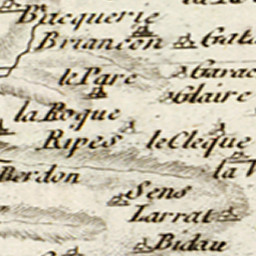 Bacquerie
Briancon
le Parc
Garac
Glaire
la Roque
Ripes
le Cleque
Berdon
Sens
Larrat
Bidau